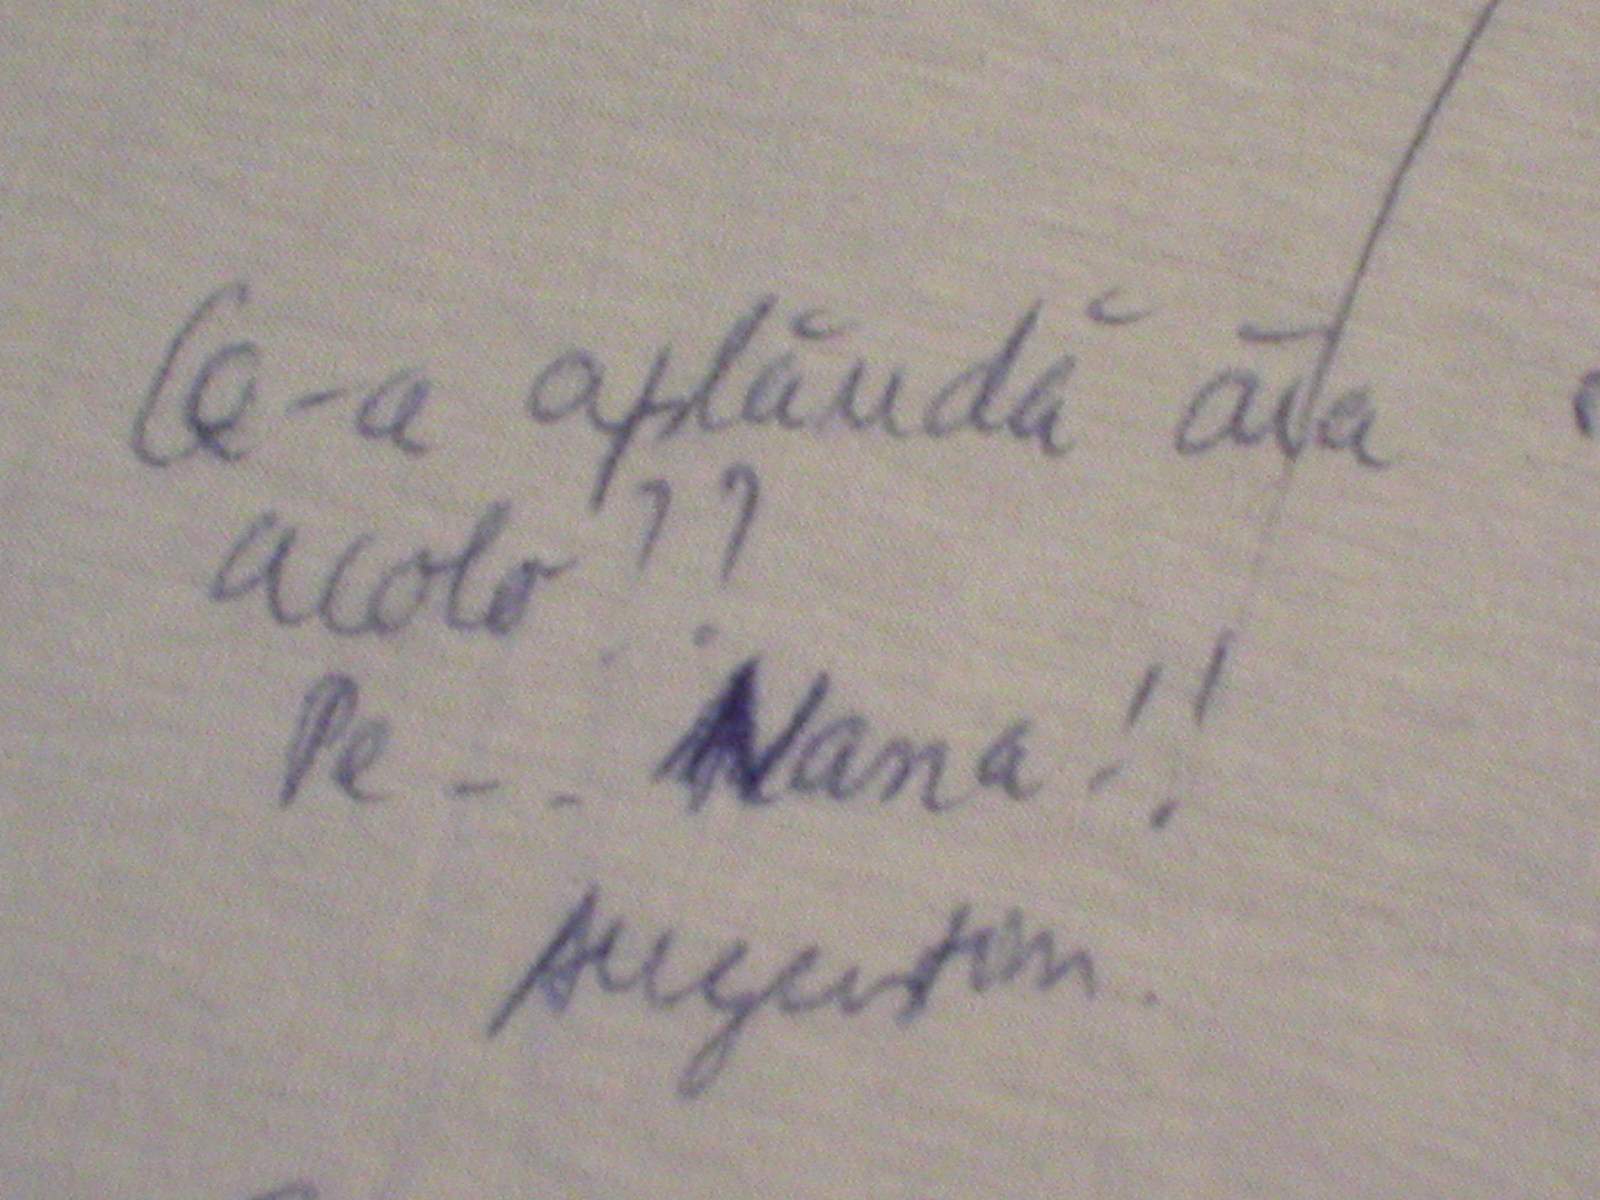 Ce-a aplăudă ăia
acolo??
Pe... Nana!!
Augustin.